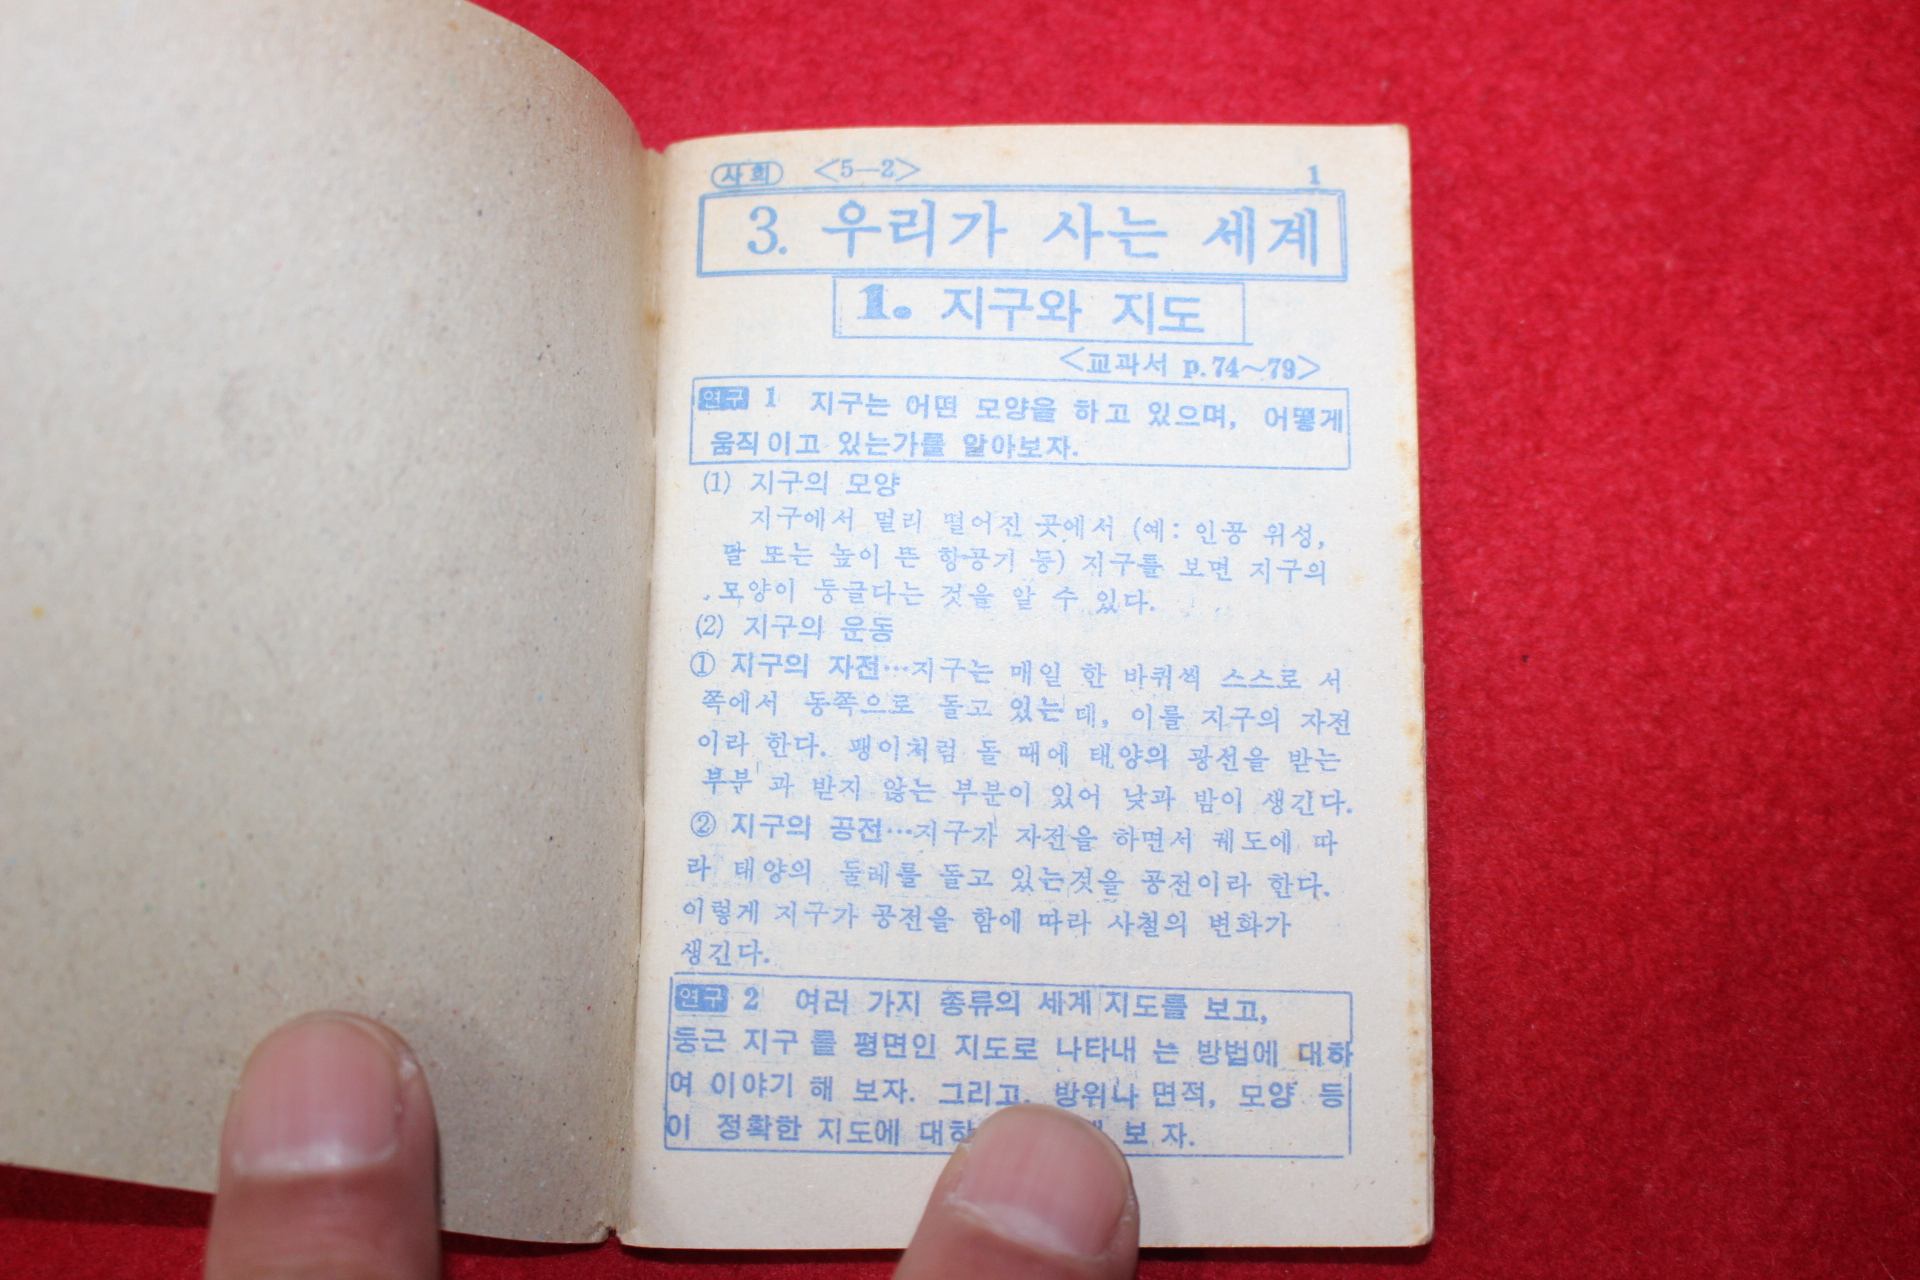 사회 <5—2> 1
3. 우리가 사는 세계
1. 지구와 지도
<교과서 p.74~79>
연구 1 지구는 어떤 모양을 하고 있으며, 어떻게
움직이고 있는가를 알아보자.
(1) 지구의 모양
지구에서 멀리 떨어진 곳에서 (예: 인공 위성,
달 또는 높이 뜬 항공기 등) 지구를 보면 지구의
모양이 둥글다는 것을 알 수 있다.
(2) 지구의 운동
① 지구의 자전…지구는 매일 한 바퀴씩 스스로 서
쪽에서 동쪽으로 돌고 있는데, 이를 지구의 자전
이라 한다. 팽이처럼 돌 때에 태양의 광선을 받는
부분과 받지 않는 부분이 있어 낮과 밤이 생긴다.
② 지구의 공전…지구가 자전을 하면서 궤도에 따
라 태양의 둘레를 돌고 있는것을 공전이라 한다.
이렇게 지구가 공전을 함에 따라 사철의 변화가
생긴다.
연구 2 여러 가지 종류의 세계 지도를 보고,
둥근 지구를 평면인 지도로 나타내는 방법에 대하
여 이야기 해 보자. 그리고, 방위나 면적, 모양 등
이 정확한 지도에 대하 보자.